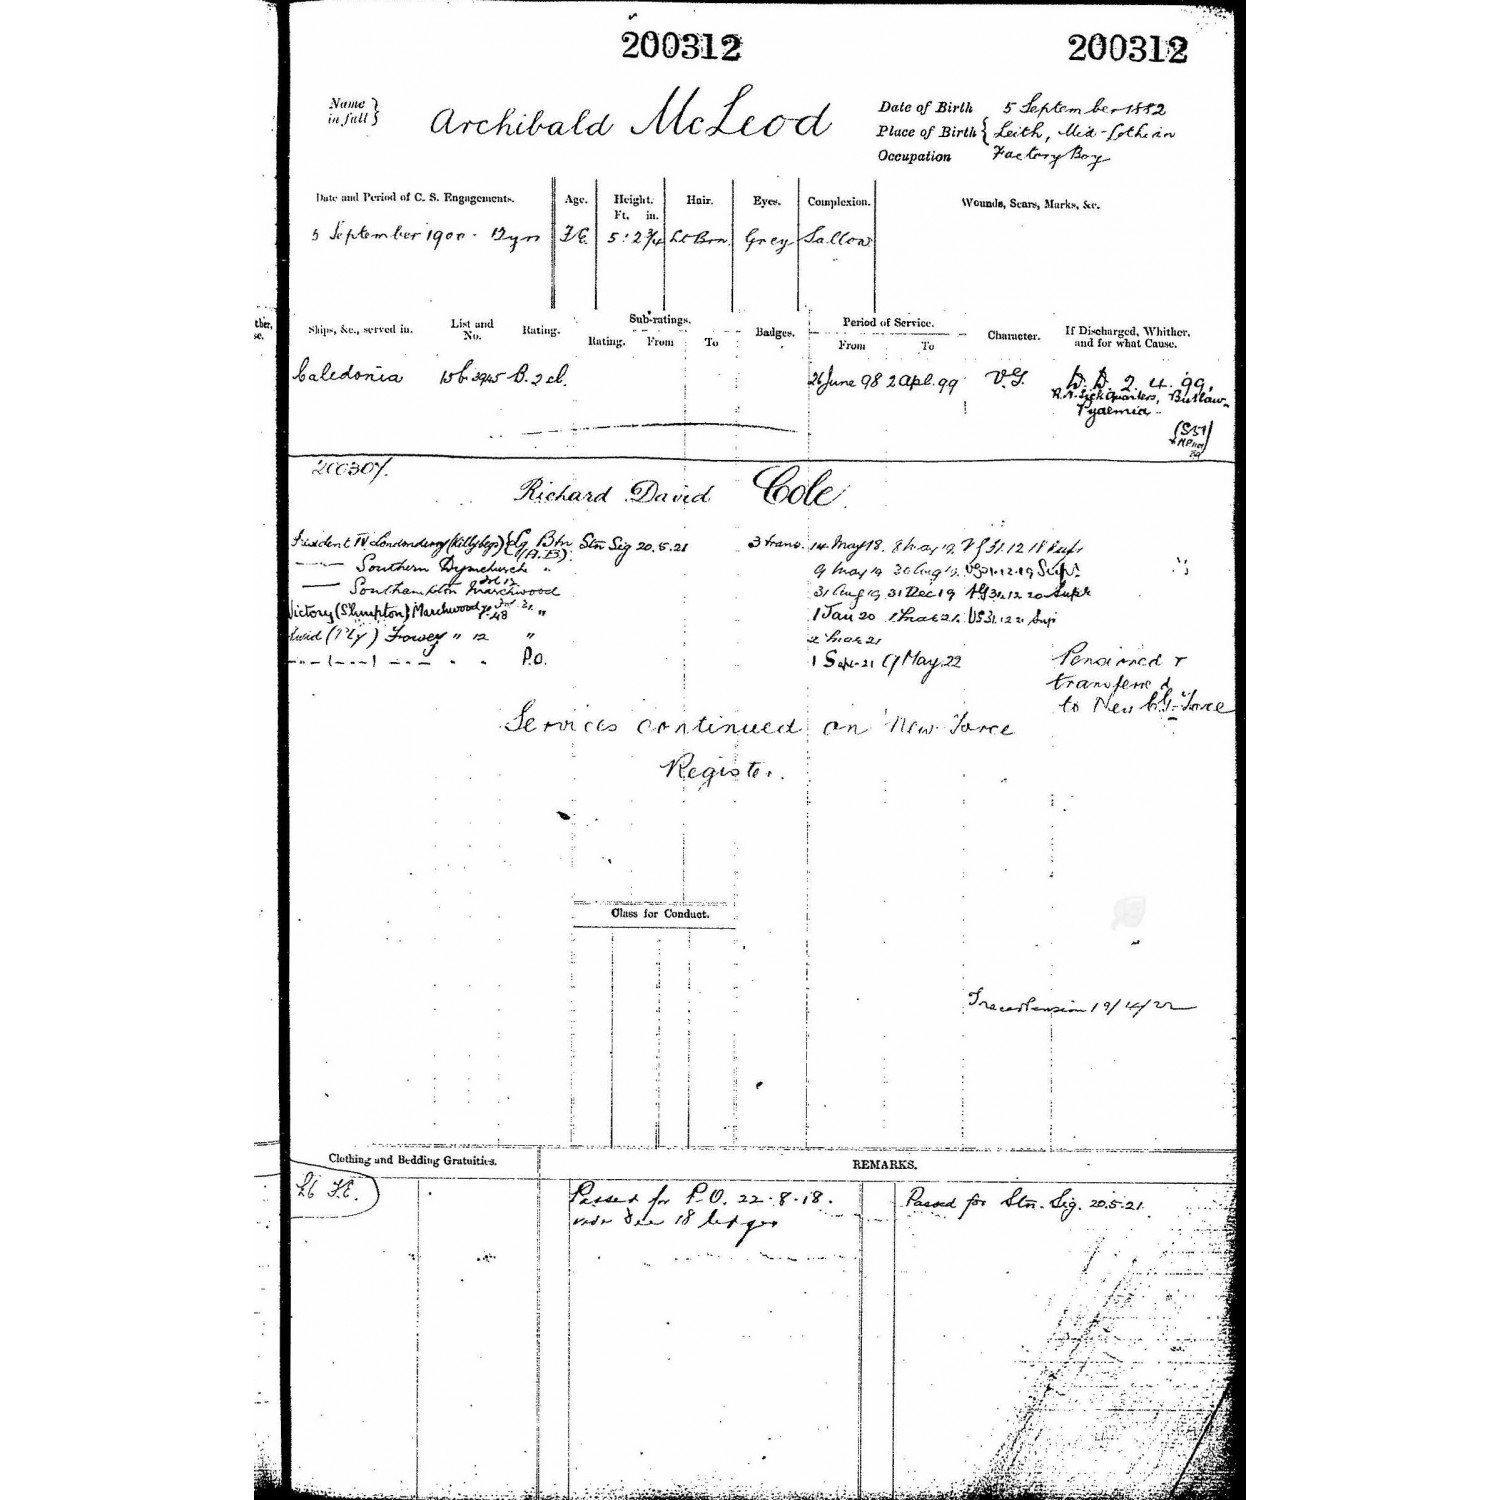 200312 200312
Name in full } Archibald McLeod
Date of Birth 5 September 1882
Place of Birth { Leith, Mid-Lothian
Occupation Factory Boy
Date and Period of C. S. Engagements. Age. Height. Ft. in. Hair. Eyes. Complexion. Wounds, Scars, Marks, &c.
5 September 1900 - 12 yrs 5:2¾ Lt Brn. Grey Sallow
ther, se.
Ships, &c., served in. List and No. Rating. Sub-ratings. Rating. From To Badges. Period of Service. From To Character. If Discharged, Whither, and for what Cause.
Caledonia 15b 3945 B. 2 cl. 26 June 98 2 Apl. 99 V.G. D.D. 2. 4. 99.
R.N. Sick Quarters, Butlaw.
Pyaemia.
200307.
Richard David Cole.
President IV Londonderry (Killybegs) Lg Btn (A.B). Stn Sig 20.5.21 3 trans. 14 May 18. 8 May 19 VG 31.12.18
Southern Dymchurch " 9 May 19 30 Aug 19. VG 31.12.19 Sup.
Southampton Marchwood 31 Aug 19 31 Dec 19 VG 31.12.20
Victory (S'hmpton) Marchwood " 1 Jan 20 1 Mar 21. VG 31.12.21 Sup
(Ply) Fowey " 12 " 2 Mar 21
" " P.O. 1 Sept-21 9 May. 22 Pensioned &
transferred
to New C.G-Force
Services continued on New Force
Register.
Class for Conduct.
Traced Pension 19/4/22
Clothing and Bedding Gratuities. REMARKS.
Passed for P.O. 22.8.18. Passed for Stn. Sig. 20.5.21.
18 ledger